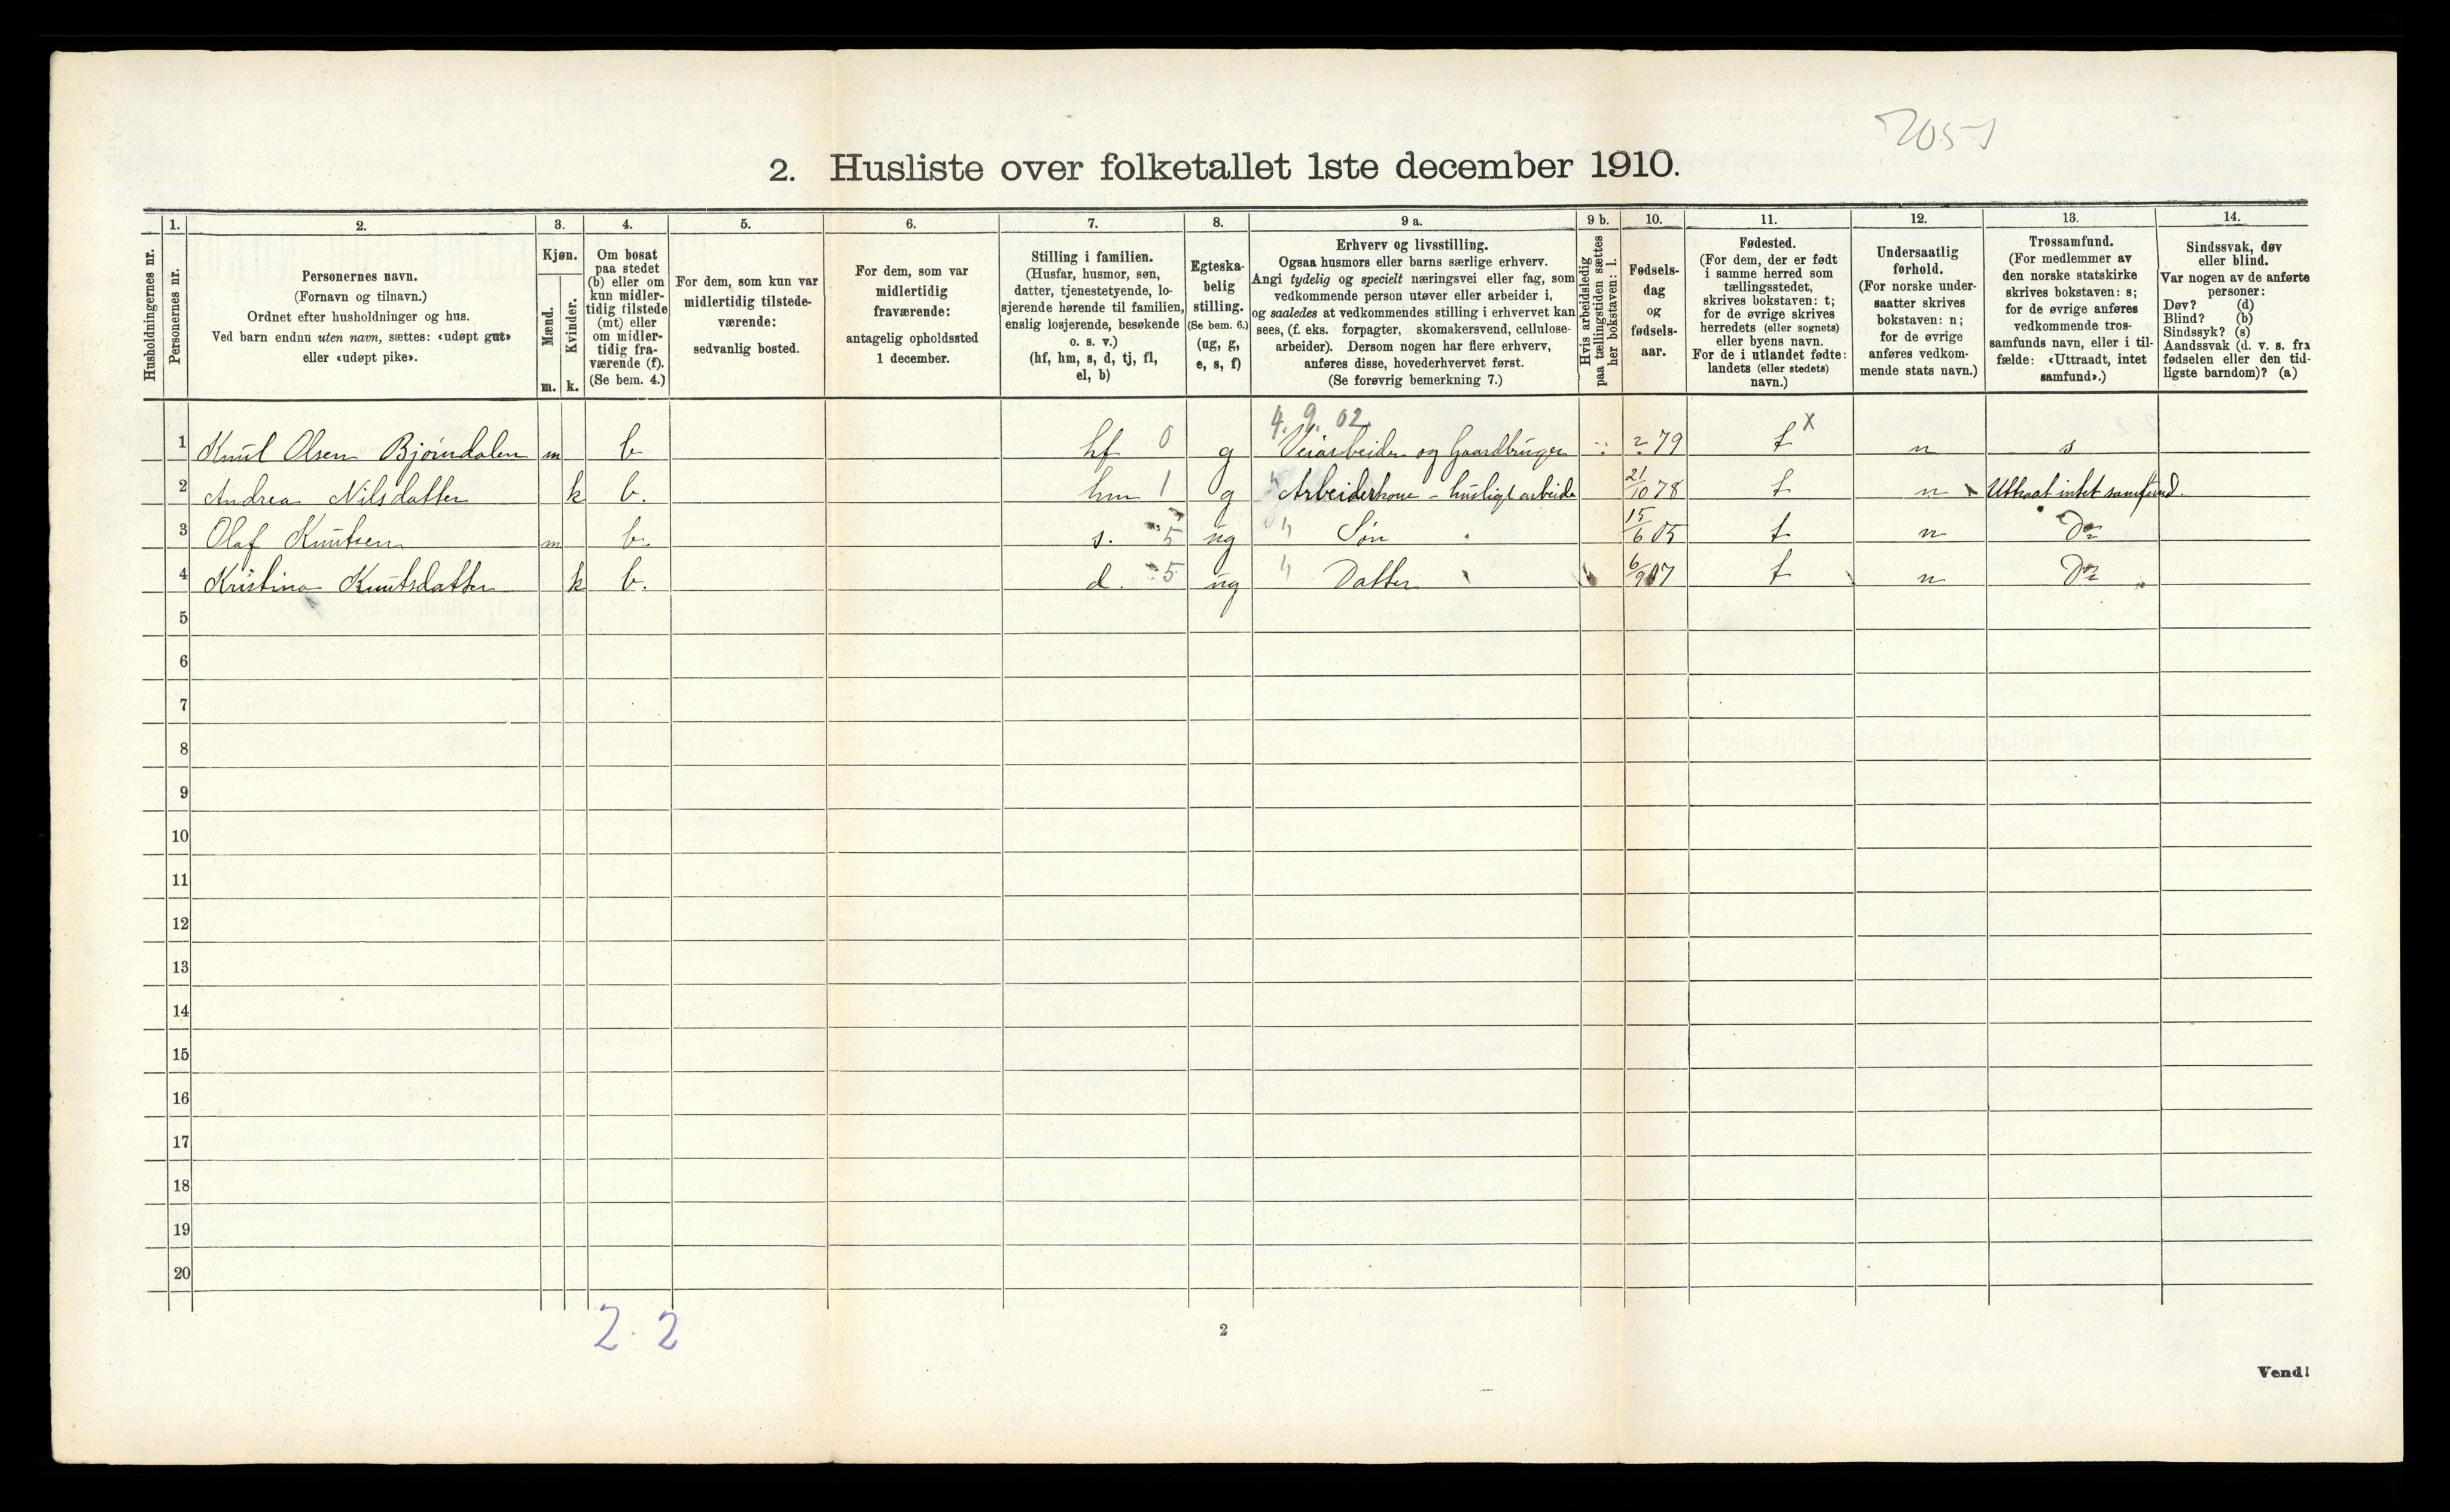 2. Husliste over folketallet 1ste december 1910.
1. 2. 3. 4. 5. 6. 7. 8. 9 a. 9 b. 10. 11. 12. 13. 14.
Husholdningernes nr.
Personernes nr.
Personernes navn.
(Fornavn og tilnavn.)
Ordnet efter husholdninger og hus.
Ved barn endnu uten navn, sættes: «udøpt gut»
eller «udøpt pike».
Kjøn.
Mænd.
Kvinder.
m. k.
Om bosat
paa stedet
(b) eller om
kun midler-
tidig tilstede
(mt) eller
om midler-
tidig fra-
værende (f).
(Se bem. 4.)
For dem, som kun var
midlertidig tilstede-
værende:
sedvanlig bosted.
For dem, som var
midlertidig
fraværende:
antagelig opholdssted
1 december.
Stilling i familien.
(Husfar, husmor, søn,
datter, tjenestetyende, lo-
sjerende hørende til familien,
enslig losjerende, besøkende
o. s. v.)
(hf, hm, s, d, tj, fl,
el, b)
Egteska-
belig
stilling.
(Se bem. 6.)
(ug, g,
e, s, f)
Erhverv og livsstilling.
Ogsaa husmors eller barns særlige erhverv.
Angi tydelig og specielt næringsvei eller fag, som
vedkommende person utøver eller arbeider i,
og saaledes at vedkommendes stilling i erhvervet kan
sees, (f. eks. forpagter, skomakersvend, cellulose-
arbeider). Dersom nogen har flere erhverv,
anføres disse, hovederhvervet først.
(Se forøvrig bemerkning 7.)
Hvis arbeidsledig
paa tællingstiden sættes
her bokstaven: l.
Fødsels-
dag
og
fødsels-
aar.
Fødested.
(For dem, der er født
i samme herred som
tællingsstedet,
skrives bokstaven: t;
for de øvrige skrives
herredets (eller sognets)
eller byens navn.
For de i utlandet fødte:
landets (eller stedets)
navn.)
Undersaatlig
forhold.
(For norske under-
saatter skrives
bokstaven: n;
for de øvrige
anføres vedkom-
mende stats navn.)
Trossamfund.
(For medlemmer av
den norske statskirke
skrives bokstaven: s;
for de øvrige anføres
vedkommende tros-
samfunds navn, eller i til-
fælde: «Uttraadt, intet
samfund».)
Sindssvak, døv
eller blind.
Var nogen av de anførte
personer:
Døv? (d)
Blind? (b)
Sindssyk? (s)
Aandssvak (d. v. s. fra
fødselen eller den tid-
ligste barndom)? (a)
4. 9. 02
1 Knut Olsen Bjørndalen m b hf 0 g Veiarbeider og Gaardbruger 79 t x n s
2 Andrea Nilsdatter k b. hm 1 g " Arbeiderkone - husligt arbeide 21/10 78 t n Uttraat intet samfund.
3 Olaf Knutsen m b. s. 5 ug " Søn 15/6 05 t n Do
4 Kristine Knutsdatter k b. d. 5 ug " Datter 6/9 07 t n Do
5
6
7
8
9
10
11
12
13
14
15
16
17
18
19
20
2. 2
2
Vend!